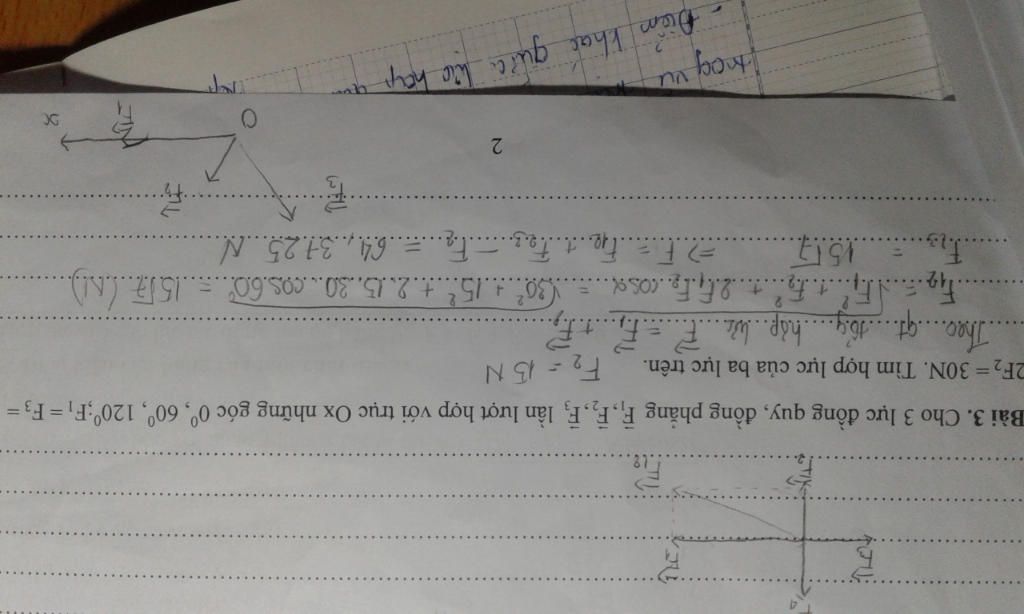 F₁₂
F₂
Bài 3. Cho 3 lực đồng quy, đồng phẳng F⃗₁, F⃗₂, F⃗₃ lần lượt hợp với trục Ox những góc 0⁰, 60⁰, 120⁰; F₁ = F₃ =
2F₂ = 30N. Tìm hợp lực của ba lực trên. F₂ = 15 N
Theo qt tổng hợp lực F⃗ = F⃗₁ + F⃗₂
F₁₂ = √F₁² + F₂² + 2F₁F₂ cosα = √30² + 15² + 2.15.30.cos60⁰ = 15√7 (N)
F₂₃ = 15√7 ⇒ F = F₁₂ + F₂₃ - F₂ = 64,3725 N
F⃗₃
F⃗₂
O
F⃗₁
x
2
- Điểm khác